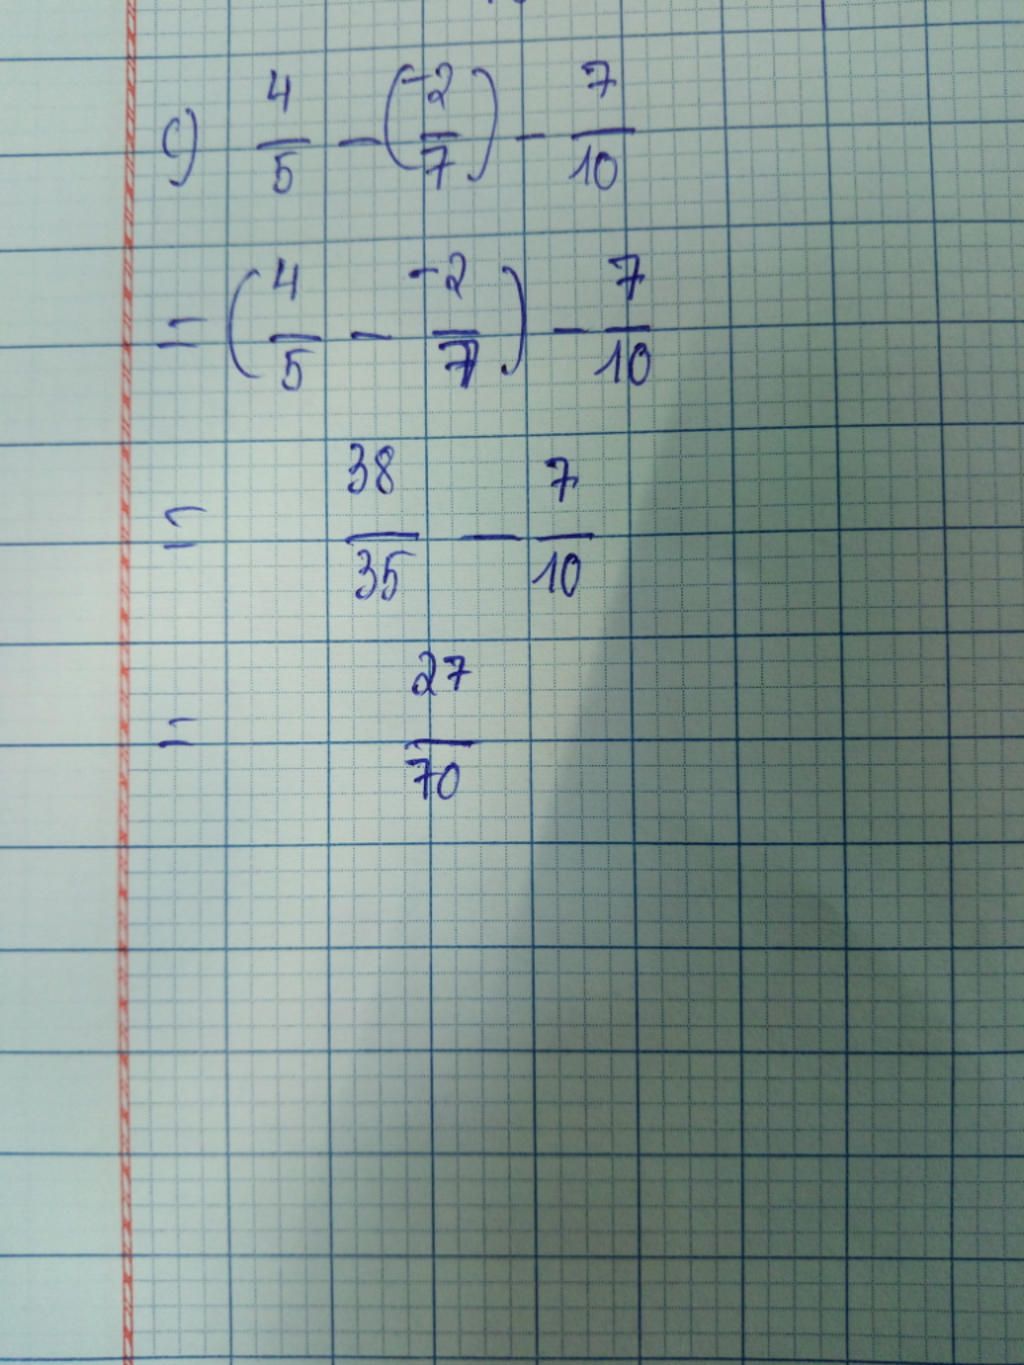 c) 4/5 - (-2/7) - 7/10
= (4/5 - -2/7) - 7/10
= 38/35 - 7/10
= 27/70